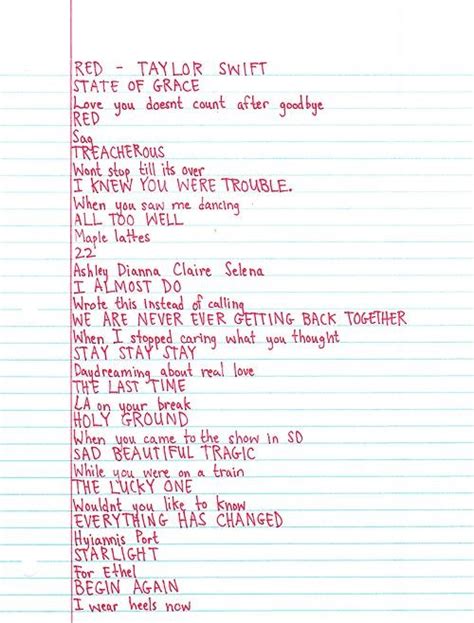 RED - TAYLOR SWIFT
STATE OF GRACE
Love you doesnt count after goodbye
RED
Sag
TREACHEROUS
Wont stop till its over
I KNEW YOU WERE TROUBLE.
When you saw me dancing
ALL TOO WELL
Maple lattes
22
Ashley Dianna Claire Selena
I ALMOST DO
Wrote this instead of calling
WE ARE NEVER EVER GETTING BACK TOGETHER
When I stopped caring what you thought
STAY STAY STAY
Daydreaming about real love
THE LAST TIME
LA on your break
HOLY GROUND
When you came to the show in SD
SAD BEAUTIFUL TRAGIC
While you were on a train
THE LUCKY ONE
Wouldnt you like to know
EVERYTHING HAS CHANGED
Hyiannis Port
STARLIGHT
For Ethel
BEGIN AGAIN
I wear heels now